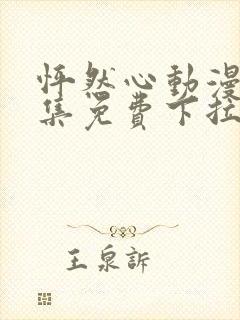 怦然心動漫
集免費下拉
王泉訴